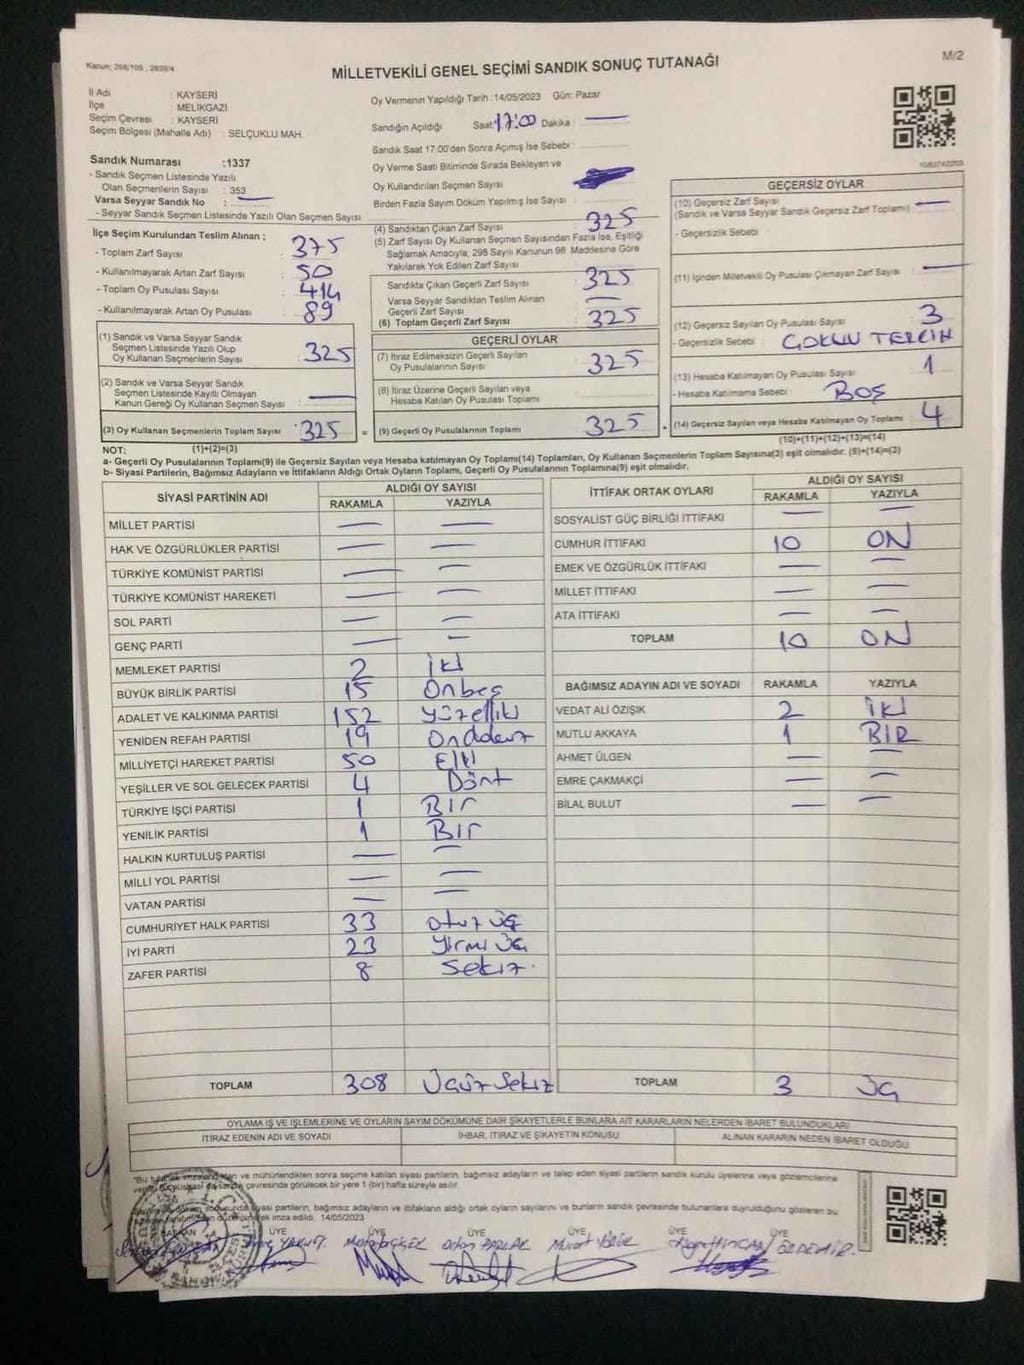 Kanun: 298/105 , 2839/4
M/2
MİLLETVEKİLİ GENEL SEÇİMİ SANDIK SONUÇ TUTANAĞI
İl Adı : KAYSERİ
İlçe : MELİKGAZİ
Seçim Çevresi : KAYSERİ
Seçim Bölgesi (Mahalle Adı) : SELÇUKLU MAH.
Sandık Numarası :1337
- Sandık Seçmen Listesinde Yazılı
Olan Seçmenlerin Sayısı : 353
Varsa Seyyar Sandık No :
- Seyyar Sandık Seçmen Listesinde Yazılı Olan Seçmen Sayısı
İlçe Seçim Kurulundan Teslim Alınan ;
- Toplam Zarf Sayısı : 375
- Kullanılmayarak Artan Zarf Sayısı : 50
- Toplam Oy Pusulası Sayısı : 414
- Kullanılmayarak Artan Oy Pusulası : 89
(1) Sandık ve Varsa Seyyar Sandık
Seçmen Listesinde Yazılı Olup
Oy Kullanan Seçmenlerin Sayısı : 325
(2) Sandık ve Varsa Seyyar Sandık
Seçmen Listesinde Kayıtlı Olmayan
Kanun Gereği Oy Kullanan Seçmen Sayısı : —
(3) Oy Kullanan Seçmenlerin Toplam Sayısı : 325
Oy Vermenin Yapıldığı Tarih :14/05/2023 Gün: Pazar
Sandığın Açıldığı Saat:17:00 Dakika : —
Sandık Saat 17:00'den Sonra Açımış İse Sebebi :
Oy Verme Saati Bitiminde Sırada Bekleyen ve
Oy Kullandırılan Seçmen Sayısı
Birden Fazla Sayım Döküm Yapılmış İse Sayısı :
(4) Sandıktan Çıkan Zarf Sayısı : 325
(5) Zarf Sayısı Oy Kullanan Seçmen Sayısından Fazla İse, Eşitliği
Sağlamak Amacıyla, 298 Sayılı Kanunun 98. Maddesine Göre
Yakılarak Yok Edilen Zarf Sayısı
Sandıkta Çıkan Geçerli Zarf Sayısı : 325
Varsa Seyyar Sandıktan Teslim Alınan
Geçerli Zarf Sayısı : —
(6) Toplam Geçerli Zarf Sayısı : 325
GEÇERLİ OYLAR
(7) İtiraz Edilmeksizin Geçerli Sayılan
Oy Pusulalarının Sayısı : 325
(8) İtiraz Üzerine Geçerli Sayılan veya
Hesaba Katılan Oy Pusulası Toplamı
= (9) Geçerli Oy Pusulalarının Toplamı : 325
GEÇERSİZ OYLAR
(10) Geçersiz Zarf Sayısı
(Sandık ve Varsa Seyyar Sandık Geçersiz Zarf Toplamı) : —
- Geçersizlik Sebebi :
(11) İçinden Milletvekili Oy Pusulası Çıkmayan Zarf Sayısı : —
(12) Geçersiz Sayılan Oy Pusulası Sayısı : 3
- Geçersizlik Sebebi : ÇOKLU TERCİH
(13) Hesaba Katılmayan Oy Pusulası Sayısı : 1
- Hesaba Katılmama Sebebi : BOŞ
(14) Geçersiz Sayılan veya Hesaba Katılmayan Oy Toplamı : 4
NOT: (1)+(2)=(3) (10)+(11)+(12)+(13)=(14)
a- Geçerli Oy Pusulalarının Toplamı(9) ile Geçersiz Sayılan veya Hesaba Katılmayan Oy Toplamı(14) Toplamları, Oy Kullanan Seçmenlerin Toplam Sayısına(3) eşit olmalıdır. (9)+(14)=(3)
b- Siyasi Partilerin, Bağımsız Adayların ve İttifakların Aldığı Ortak Oyların Toplamı, Geçerli Oy Pusulalarının Toplamına(9) eşit olmalıdır.
SİYASİ PARTİNİN ADI ALDIĞI OY SAYISI
RAKAMLA YAZIYLA
MİLLET PARTİSİ — —
HAK VE ÖZGÜRLÜKLER PARTİSİ — —
TÜRKİYE KOMÜNİST PARTİSİ — —
TÜRKİYE KOMÜNİST HAREKETİ — —
SOL PARTİ — —
GENÇ PARTİ — —
MEMLEKET PARTİSİ 2 İki
BÜYÜK BİRLİK PARTİSİ 15 Onbeş
ADALET VE KALKINMA PARTİSİ 152 Yüzelliki
YENİDEN REFAH PARTİSİ 19 Ondokuz
MİLLİYETÇİ HAREKET PARTİSİ 50 Elli
YEŞİLLER VE SOL GELECEK PARTİSİ 4 Dört
TÜRKİYE İŞÇİ PARTİSİ 1 Bir
YENİLİK PARTİSİ 1 Bir
HALKIN KURTULUŞ PARTİSİ — —
MİLLİ YOL PARTİSİ — —
VATAN PARTİSİ — —
CUMHURİYET HALK PARTİSİ 33 otuz üç
İYİ PARTİ 23 yirmi üç
ZAFER PARTİSİ 8 Sekiz.
TOPLAM 308 Üçyüz Sekiz
İTTİFAK ORTAK OYLARI ALDIĞI OY SAYISI
RAKAMLA YAZIYLA
SOSYALİST GÜÇ BİRLİĞİ İTTİFAKI — —
CUMHUR İTTİFAKI 10 ON
EMEK VE ÖZGÜRLÜK İTTİFAKI — —
MİLLET İTTİFAKI — —
ATA İTTİFAKI — —
TOPLAM 10 ON
BAĞIMSIZ ADAYIN ADI VE SOYADI RAKAMLA YAZIYLA
VEDAT ALİ ÖZIŞIK 2 İKİ
MUTLU AKKAYA 1 BİR
AHMET ÜLGEN — —
EMRE ÇAKMAKÇİ — —
BİLAL BULUT — —
TOPLAM 3 üç
OYLAMA İŞ VE İŞLEMLERİNE VE OYLARIN SAYIM DÖKÜMÜNE DAİR ŞİKAYETLERLE BUNLARA AİT KARARLARIN NELERDEN İBARET BULUNDUKLARI
İTİRAZ EDENİN ADI VE SOYADI İHBAR, İTİRAZ VE ŞİKAYETİN KONUSU ALINAN KARARIN NEDEN İBARET OLDUĞU
mühürlendikten sonra seçime katılan siyasi partilerin, bağımsız adayların ve talep eden siyasi partilerin sandık kurulu üyelerine veya gözlemcilerine
sandık çevresinde görülecek bir yere 1 (bir) hafta süreyle asılır.
siyasi partilerin, bağımsız adayların ve ittifakların aldığı ortak oyların sayılarını ve bunların sandık çevresinde bulunanlara duyrulduğunu gösteren bu
imza edildi. 14/05/2023
BAŞKAN ÜYE ÜYE ÜYE ÜYE ÜYE ÜYE